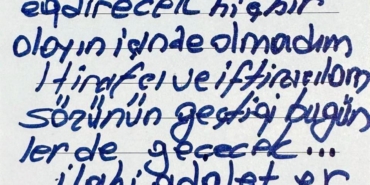 eğdirecek hiçbir
olayın içinde olmadım
İtirafçı ve iftiracıların
sözünün geçtiği bugün
lerde geçecek...
ilahi adalet er